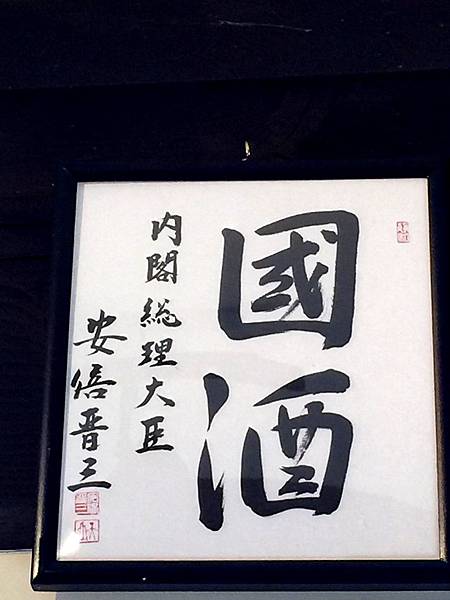 國酒
内閣総理大臣
安倍晋三